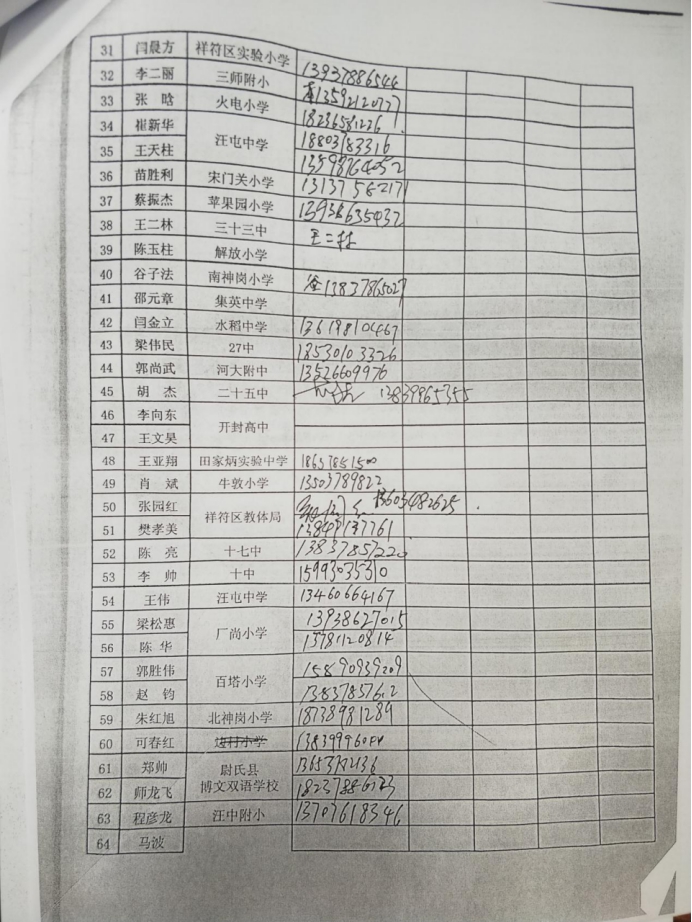 31 闫晨方 祥符区实验小学
32 李二丽 三师附小 13937886544
33 张 晗 火电小学 13592120777
34 崔新华 汪屯中学 18236581226
35 王天柱 18803783316
36 苗胜利 宋门关小学 13598764052
37 蔡振杰 苹果园小学 13137582171
38 王二林 三十三中 13938635432
39 陈玉柱 解放小学 王二林
40 谷子法 南神岗小学 13837865027
41 邵元章 集英中学
42 闫金立 水稻中学 13619810467
43 梁伟民 27中 18530103326
44 郭尚武 河大附中 13526609976
45 胡 杰 二十五中 13839965355
46 李向东 开封高中
47 王文昊
48 王亚翔 田家炳实验中学 18637851500
49 肖 斌 牛敦小学 13503789822
50 张园红 祥符区教体局 13603482625
51 樊孝美 13849137761
52 陈 亮 十七中 13837857220
53 李 帅 十中 15993035310
54 王伟 汪屯中学 13460664167
55 梁松惠 厂尚小学 13938627015
56 陈 华 13781120814
57 郭胜伟 百塔小学 15890939209
58 赵 钧 13837857612
59 朱红旭 北神岗小学 18738981289
60 可春红
61 郑帅 尉氏县
62 师龙飞 博文双语学校
63 程彦龙 汪中附小 13707618346
64 马波